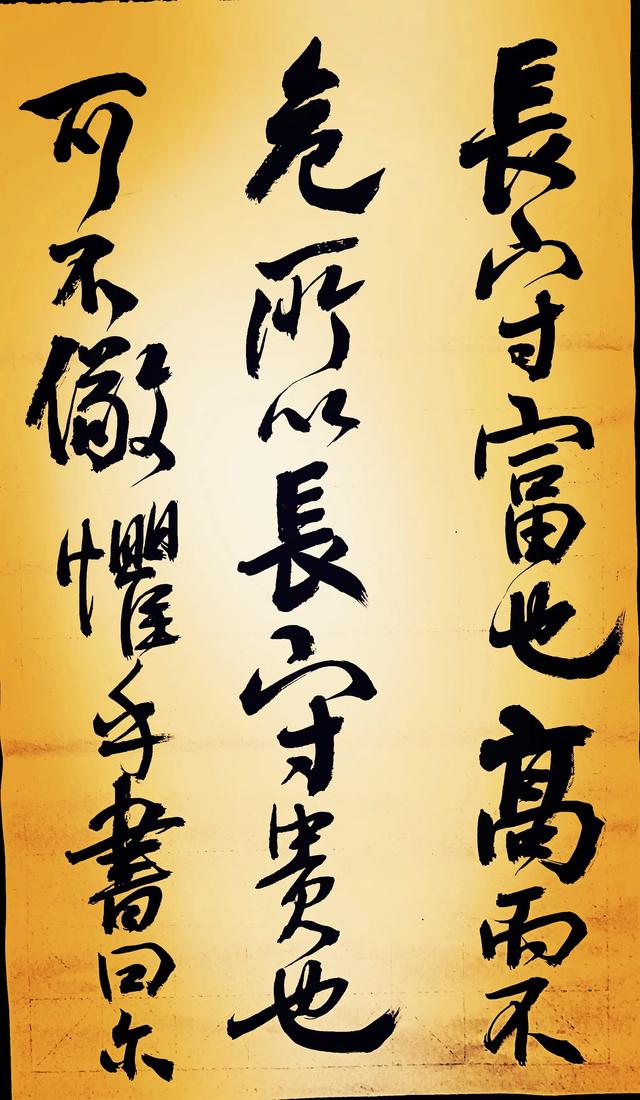 長守富也高而不
危所以長守貴也
可不儆懼乎書曰尔